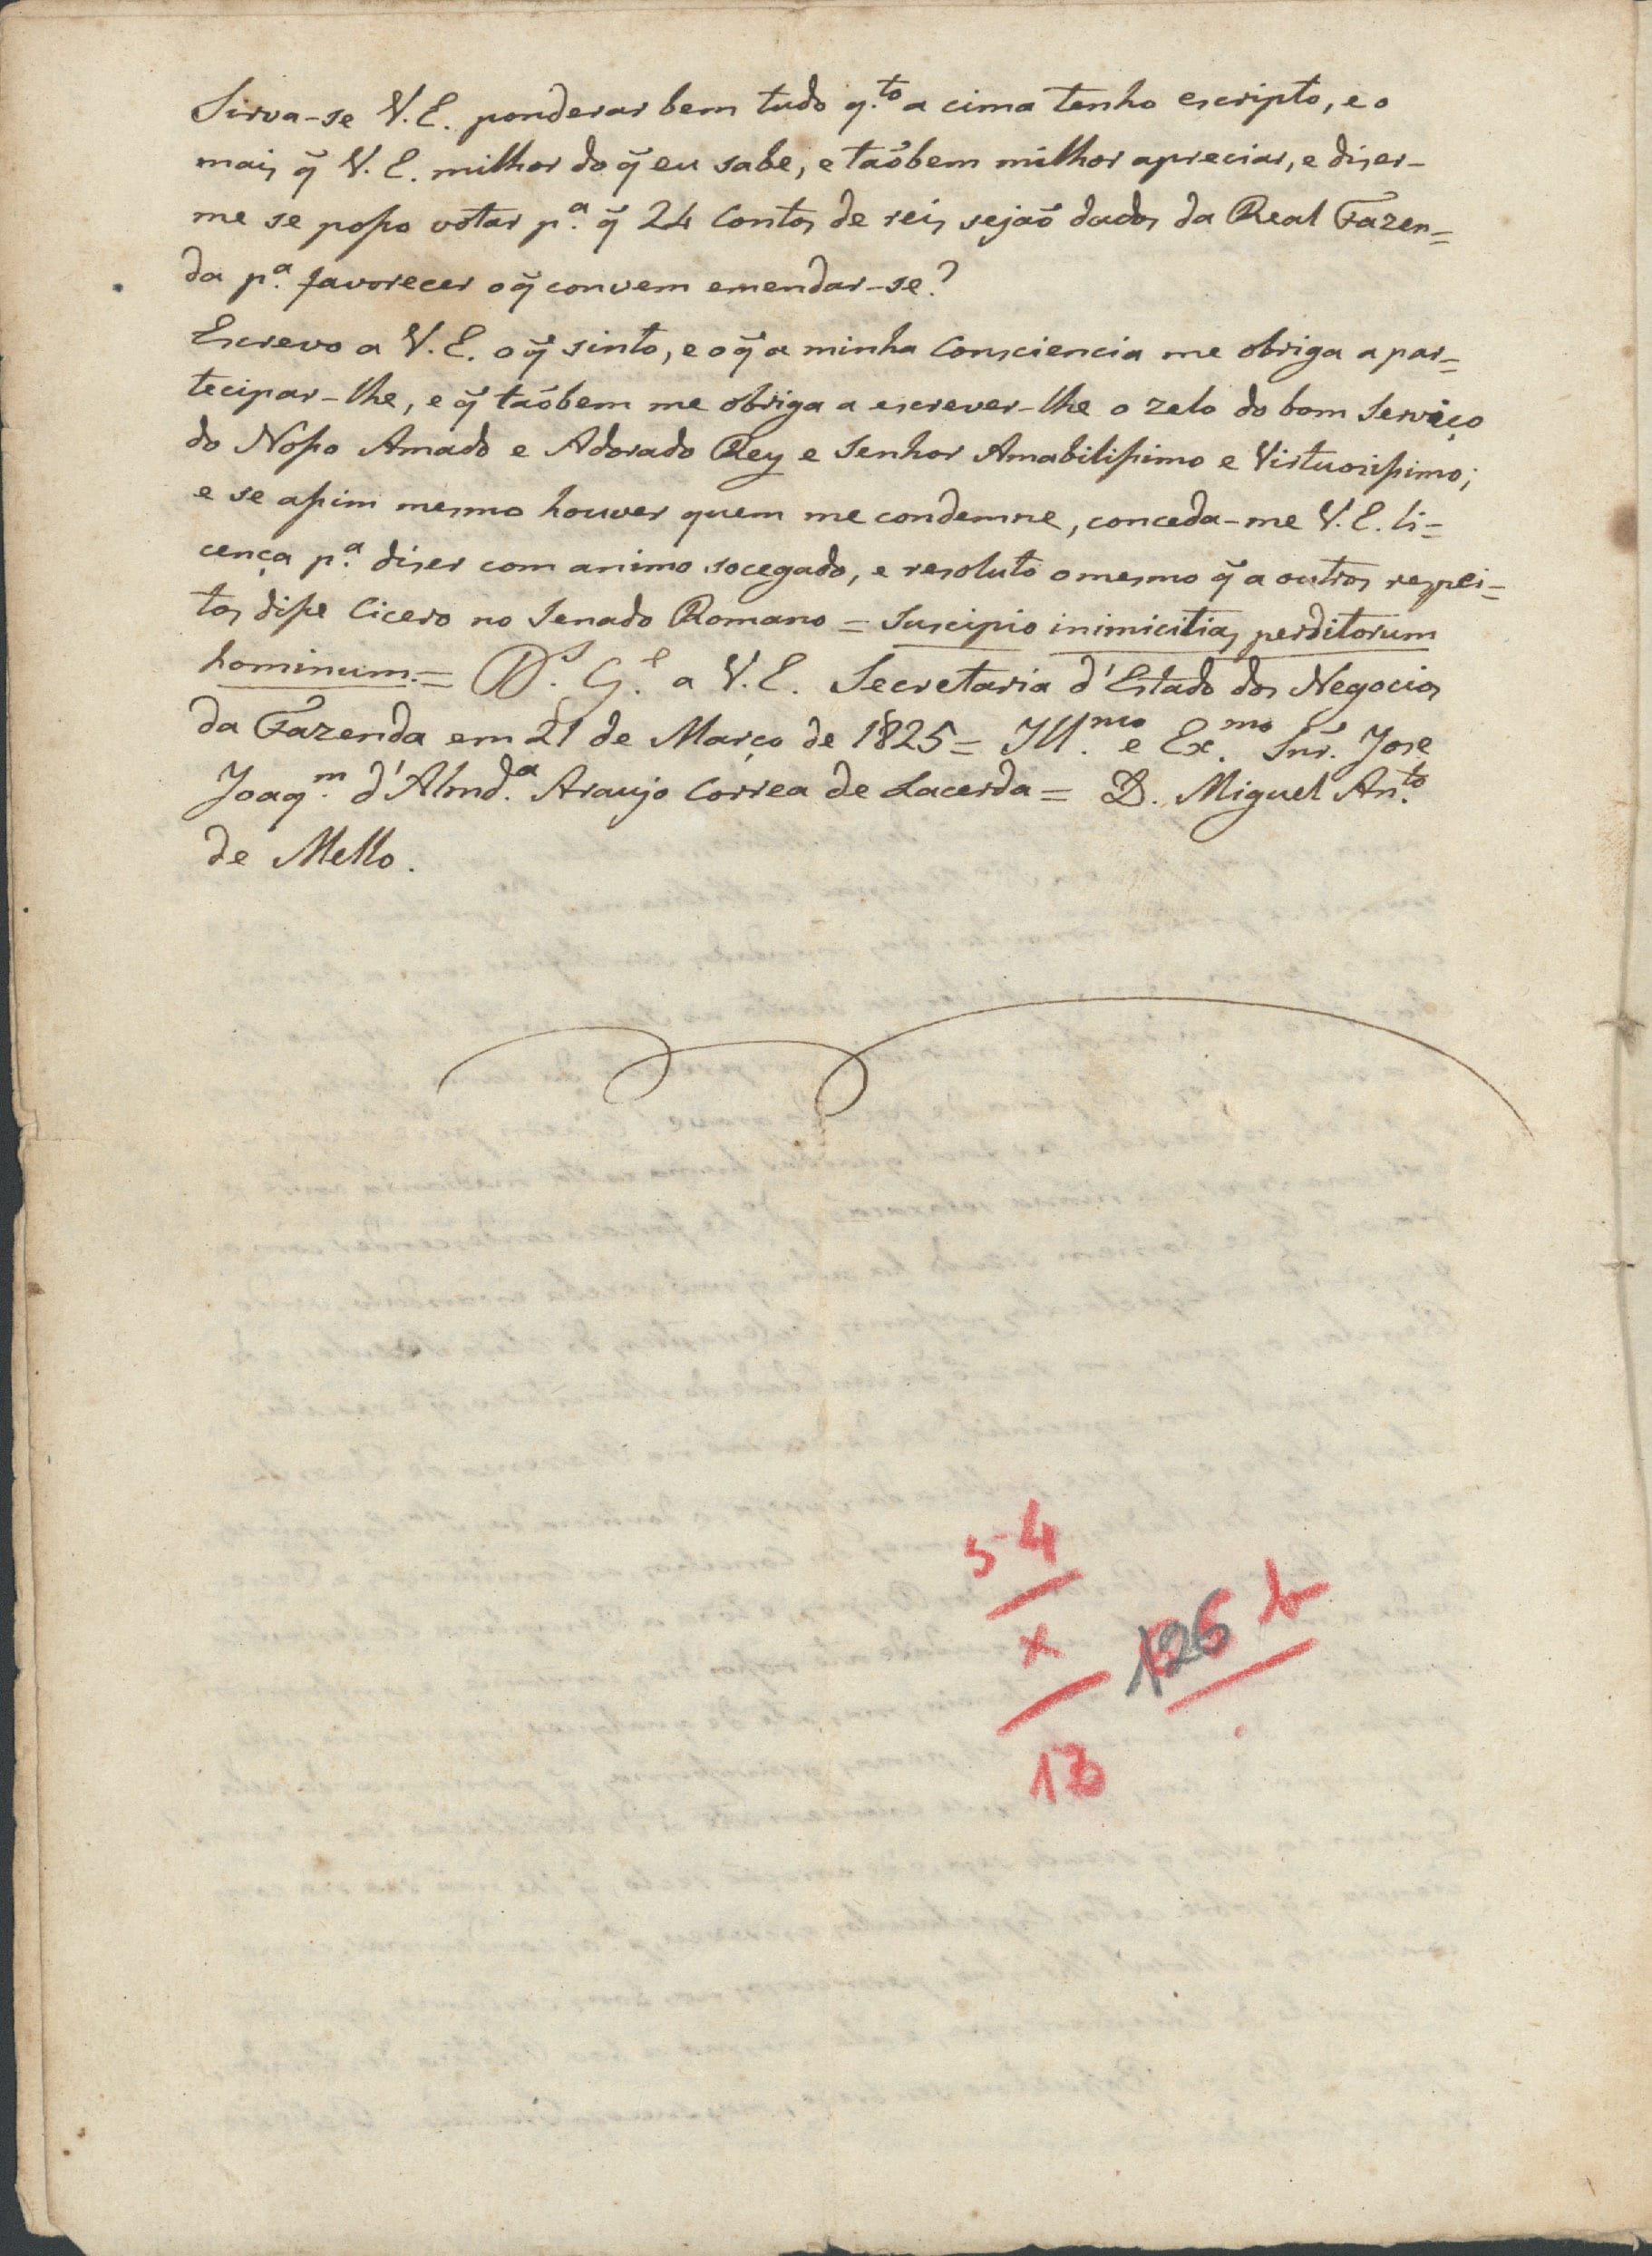 Sirva-se V. E. ponderar bem tudo q.to a cima tenho escripto, e o
mais q̃ V. E. milhor do q̃ eu sabe, e taõbem milhor apreciar, e diser-
me se posso votar p.a q̃ 24 Contos de reis sejaõ dados da Real Fazen=
da p.a favorecer o q̃ convem emendar-se?
Escrevo a V. E. o q̃ sinto, e o q̃ a minha Consciencia me obriga a par=
tecipar-lhe, e q̃ taõbem me obriga a escrever-lhe o zelo do bom Serviço
do Nosso Amado e Adorado Rey e Senhor Amabilissimo e Virtuosissimo;
e se assim mesmo houver quem me condemne, conceda-me V. E. li=
cença p.a diser com animo socegado, e resoluto o mesmo q̃ a outros respei=
tos disse Cicero no Senado Romano = Suscipio inimicitias perditorum
hominum. = D.s G.e a V. E. Secretaria d'Estado dos Negocios
da Fazenda em 21 de Março de 1825 = Ill.mo e Ex.mo Snr. Jose
Joaq.m d'Almd.a Araujo Correa de Lacerda = D. Miguel An.to
de Mello.
54
x
13
126 b